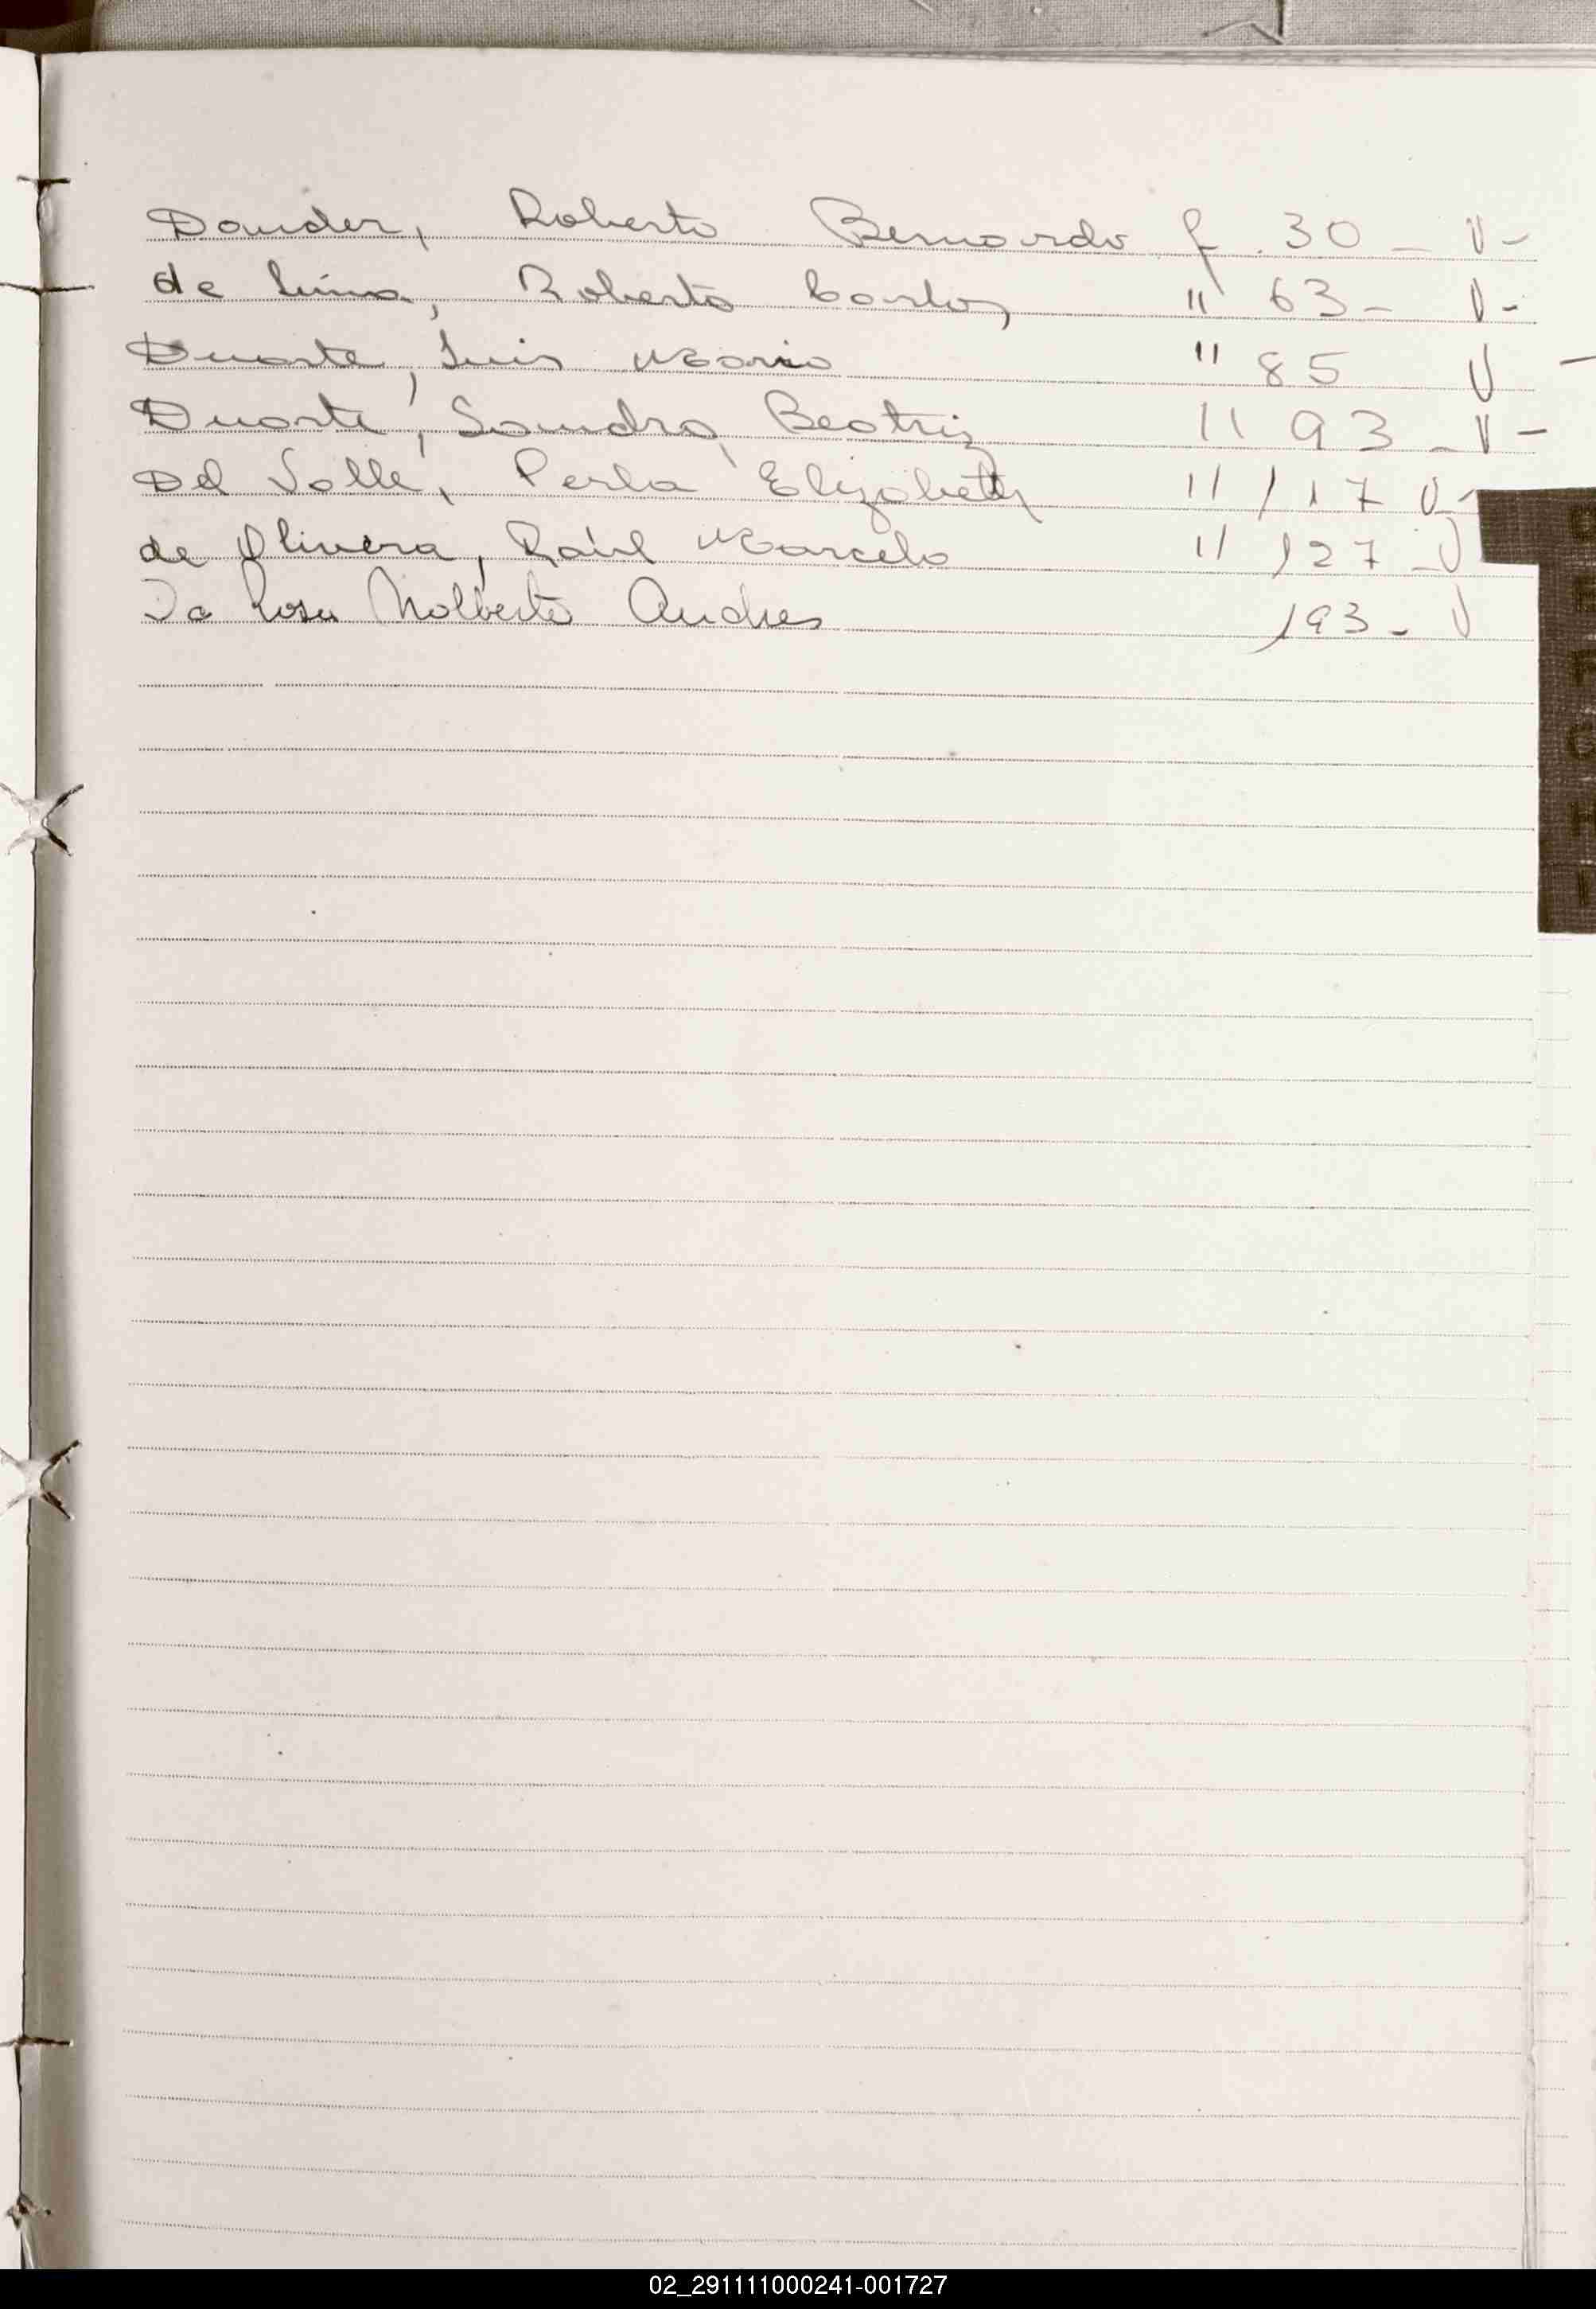 Dander, Roberto Bernardo f. 30 - V -
de Lima, Roberto Carlos " 63 - V -
Duarte, Luis Mario " 85 V -
Duarte, Sandra Beatriz " 93 - V -
Del Valle, Perla Elizabeth " 117 V -
de Olivera, Raúl Marcelo " 127 - V
Da Rosa Nolberto Andres 193 - V
D
E
F
G
H
I
02_291111000241-001727